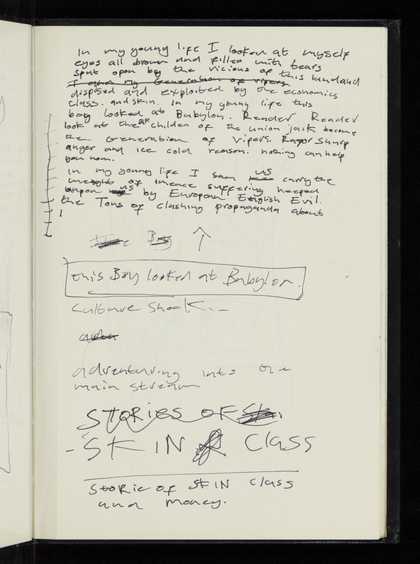 In my young life I looked at myself
eyes all brown and filled with tears
spat open by the vicious of this husband
I saw my Generation of vipers
disposed and exploited by the economics
class. and skin. in my young life this
boy looked at Babylon. Reader Reader
look at the children of the union jack become
the Generation of vipers. Razor sharp
anger and ice cold reason. nothing can help
you now.
In my young life I saw us carry the
weight of imense suffering heeped
upon us by European English Evil.
the Tons of clashing propaganda about
this Boy looked at Babylon.
Culture Shock.
adventuring into the
main stream
STORIES OF
- SKIN Class
storie of SKIN Class
and money.